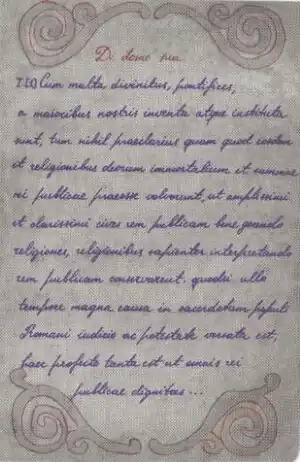 De domo sua
I (1) Cum multa divinitus, pontifices,
a maioribus nostris inventa atque instituta
sunt, tum nihil praeclarius quam quod eosdem
et religionibus deorum immortalium et summae
rei publicae praeesse voluerunt, ut amplissimi
et clarissimi cives rem publicam bene gerendo
religiones, religionibus sapienter interpretando
rem publicam conservarent. quodsi ullo
tempore magna causa in sacerdotum populi
Romani iudicio ac potestate versata est,
haec profecto tanta est ut omnis rei
publicae dignitas ...